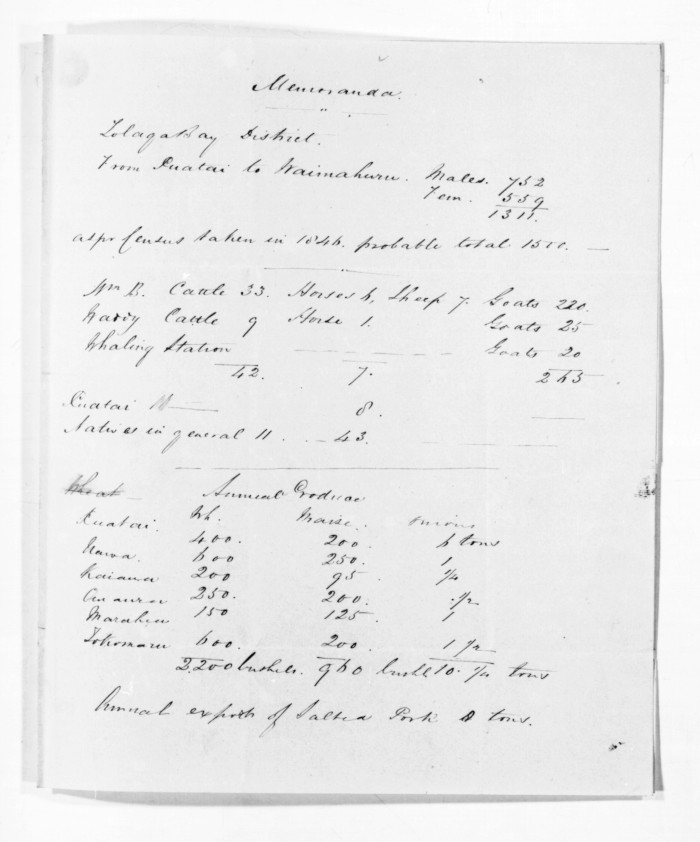 Memoranda.
Tolaga Bay District.
From Puatai to Waimahuru. Males. 752
Fem. 559
1311.
as pr Census taken in 1846. probable total 1500. —
Wm B. Cattle 33. Horses 6, Sheep 7. Goats 220.
Harry Cattle 9 Horse 1. Goats 25
Whaling Station Goats 20
42. 7. 265
Puatai 8.
Natives in general 11. 43.
Wheat Annual Produce
Wh. Maize. onions
Puatai. 400. 200. 6 tons
Uawa. 600 250. 1
Kaiaua 200 95. 1/4
Anaura 250. 200. 1/2
Marahea 150 125. 1
Tokomaru 600. 200. 1 1/2
2,200 bushels. 960 bushl 10. 1/4 tons
Annual export of Salted Pork 8 tons.